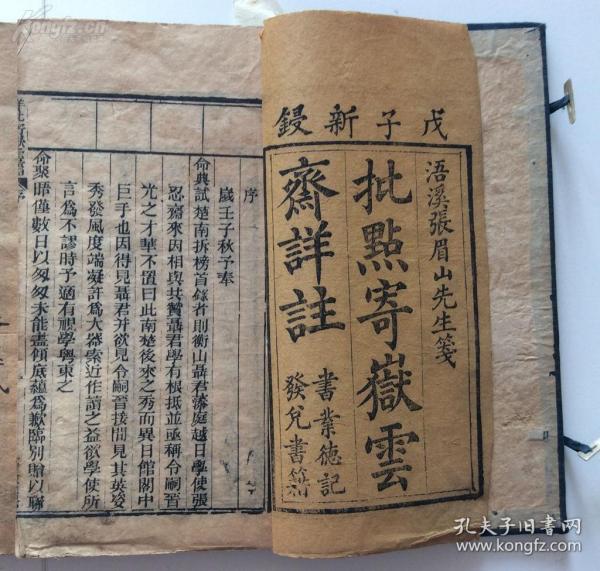 戊子新鋟
浯溪張眉山先生箋
批點寄嶽雲
齋詳註
書業德記
發兌書籍
序
歲壬子秋予奉
命典試楚南拆榜首錄者則衡山聶君濂庭越日學使張
忍齋來因相與共贊聶君學有根柢並亟稱令嗣晋
光之才華不置曰此南楚後來之秀而異日館閣中
巨手也因得見聶君并欲見令嗣晋接間見其英姿
秀發風度端凝許爲大器索近作讀之益欲學使所
言爲不謬時予適有視學粤東之
命聚晤僅數日以匆匆未能盡傾底蘊爲歉臨別贈以聯
孔夫子旧书网
www.kongfz.com
Kongfz.com